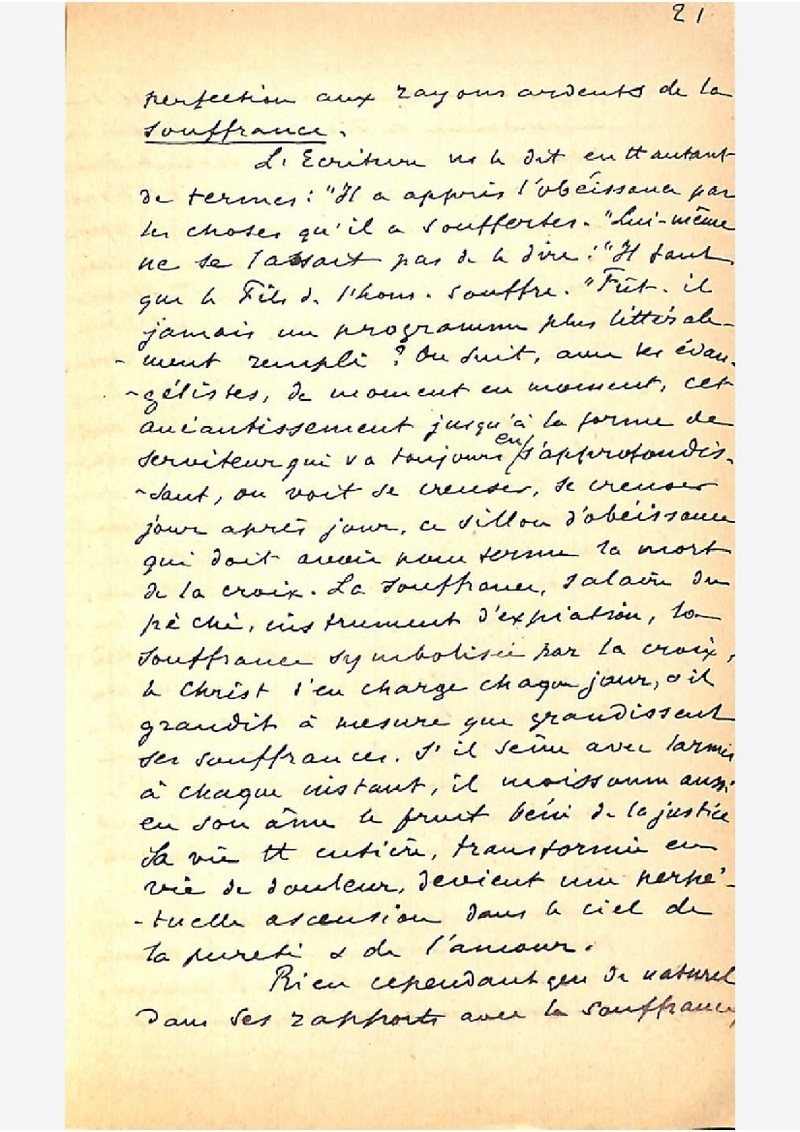 21
perfection aux rayons ardents de la
souffrance.
L'Ecriture ns le dit en tt autant
de termes: "Il a appris l'obéissance par
les choses qu'il a souffertes." Lui-même
ne se lassait pas de le dire: "Il faut
que le Fils de l'hom. souffre." Fût-il
jamais un programme plus littérale-
-ment rempli? On suit, avec les évan-
-gélistes, de moment en moment, cet
anéantissement jusqu'à la forme de
serviteur qui va toujours en s'approfondis-
-sant, on voit se creuser, se creuser
jour après jour, ce sillon d'obéissance
qui doit avoir pour terme la mort
de la croix. La souffrance, salaire du
péché, instrument d'expiation, la
souffrance symbolisée par la croix,
le Christ s'en charge chaque jour, & il
grandit à mesure que grandissent
ses souffrances. S'il sème avec larmes
à chaque instant, il moissonne aussi
en son âme le fruit béni de la justice
Sa vie tt entière, transformée en
vie de douleur, devient une perpé-
-tuelle ascension dans le ciel de
la pureté & de l'amour.
Rien cependant que de naturel
dans ses rapports avec la souffrance,